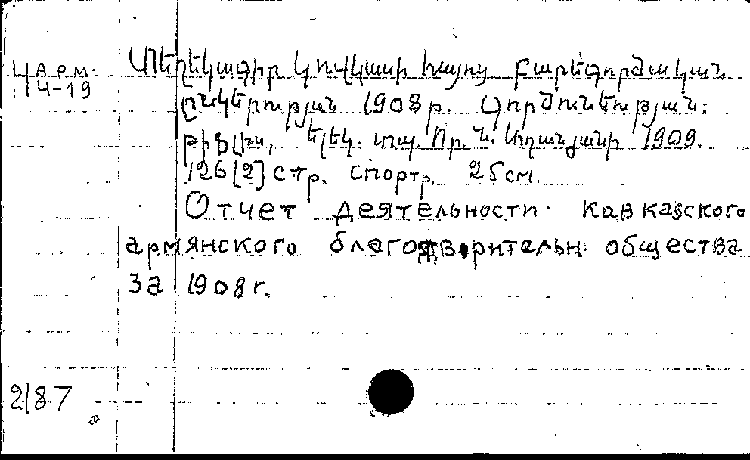 арм.
4-19
Տեղեկագիր Կովկասի հայոց բարեգործական
ընկերության 1908 թ. Գործունեության.
Թիֆլիս, Էլեկ. տպ. Օր. Ն. Աղանյանի 1909.
126 [2] стр. с портр. 25 см.
Отчет деятельности кавказского
армянского благотворительн. общества
за 1908 г.
2187